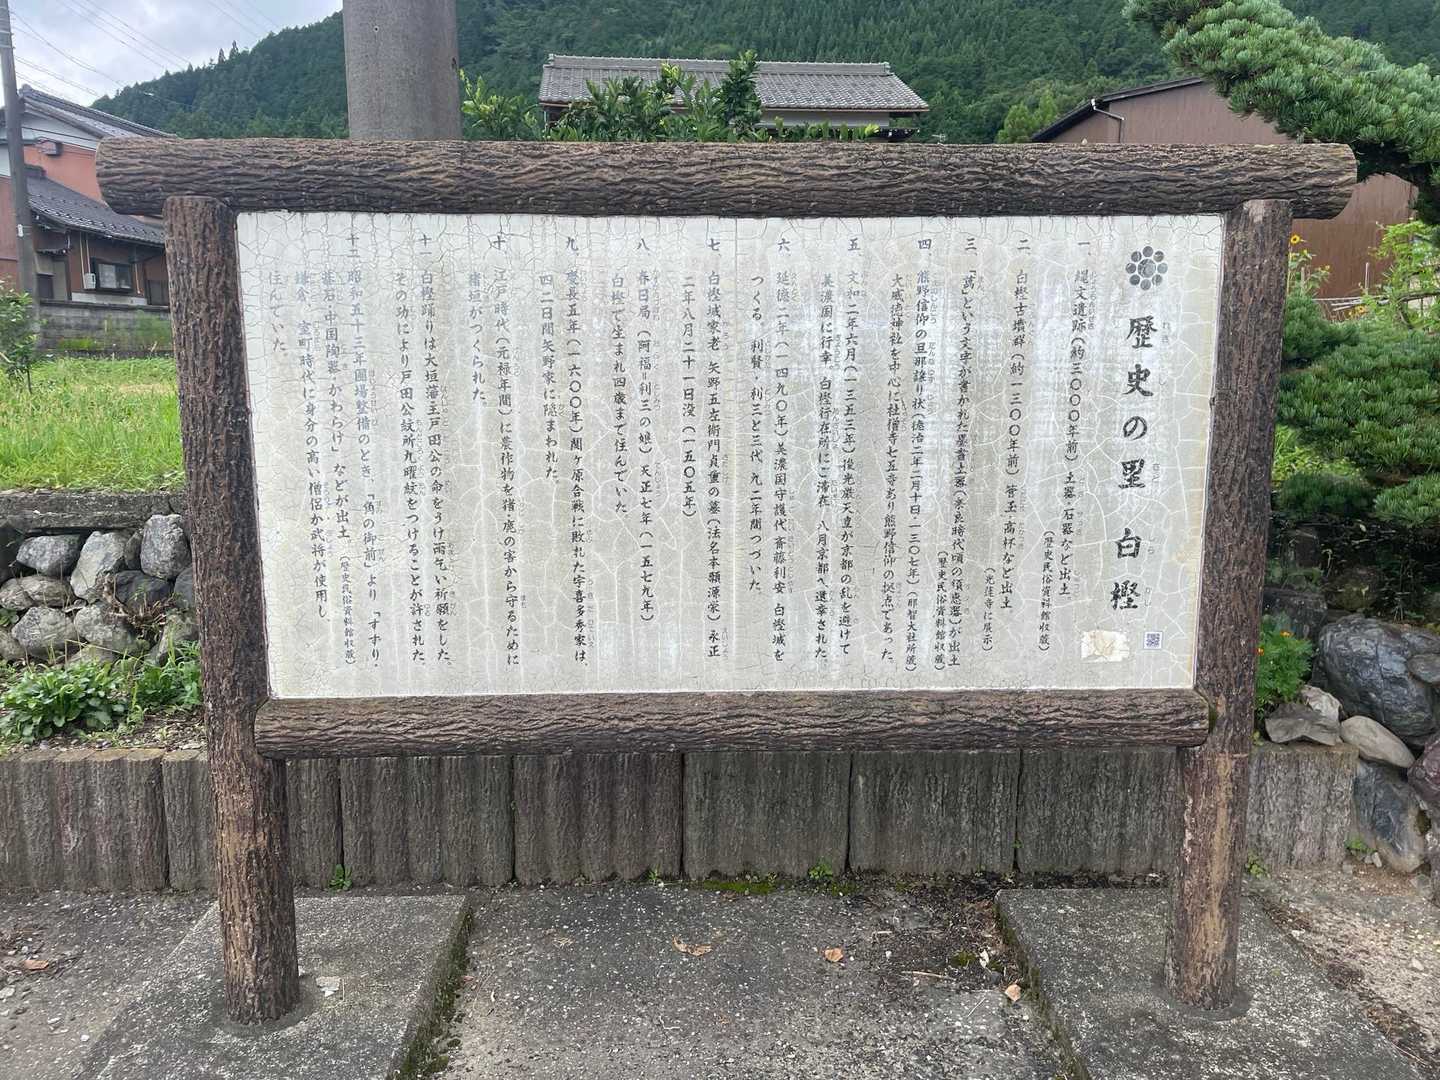 歴史の里 白樫
一、縄文遺跡(約三〇〇〇年前)土器・石器など出土
(歴史民俗資料館収蔵)
二、白樫古墳群(約一三〇〇年前)管玉・高杯など出土
(光蓮寺に展示)
三、「萬」という文字が書かれた墨書土器(奈良時代頃の須恵器)が出土
(歴史民俗資料館収蔵)
四、熊野信仰の旦那譲り状(徳治二年二月十日・一三〇七年)(那智大社所蔵)
大威徳神社を中心に社僧寺七五寺あり熊野信仰の拠点であった。
五、文和二年六月(一三五三年)後光厳天皇が京都の乱を避けて
美濃国に行幸。白樫行在所にご滞在、八月京都へ還幸された。
六、延徳二年(一四九〇年)美濃国守護代斎藤利安 白樫城を
つくる。利賢、利三と三代、九二年間つづいた。
七、白樫城家老 矢野五左衛門貞重の墓(法名本願源栄)永正
二年八月二十一日没(一五〇五年)
八、春日局(阿福=利三の娘)天正七年(一五七九年)
白樫で生まれ四歳まで住んでいた。
九、慶長五年(一六〇〇年)関ヶ原合戦に敗れた宇喜多秀家は、
四二日間矢野家に隠まわれた。
十、江戸時代(元禄年間)に農作物を猪・鹿の害から守るために
猪垣がつくられた。
十一、白樫踊りは大垣藩主戸田公の命をうけ雨乞い祈願をした。
その功により戸田公紋所九曜紋をつけることが許された。
十二、昭和五十三年圃場整備のとき、「角の御前」より「すずり・
墓石・中国陶器・かわらけ」などが出土。(歴史民俗資料館収蔵)
鎌倉、室町時代に身分の高い僧侶か武将が使用し、
住んでいた。